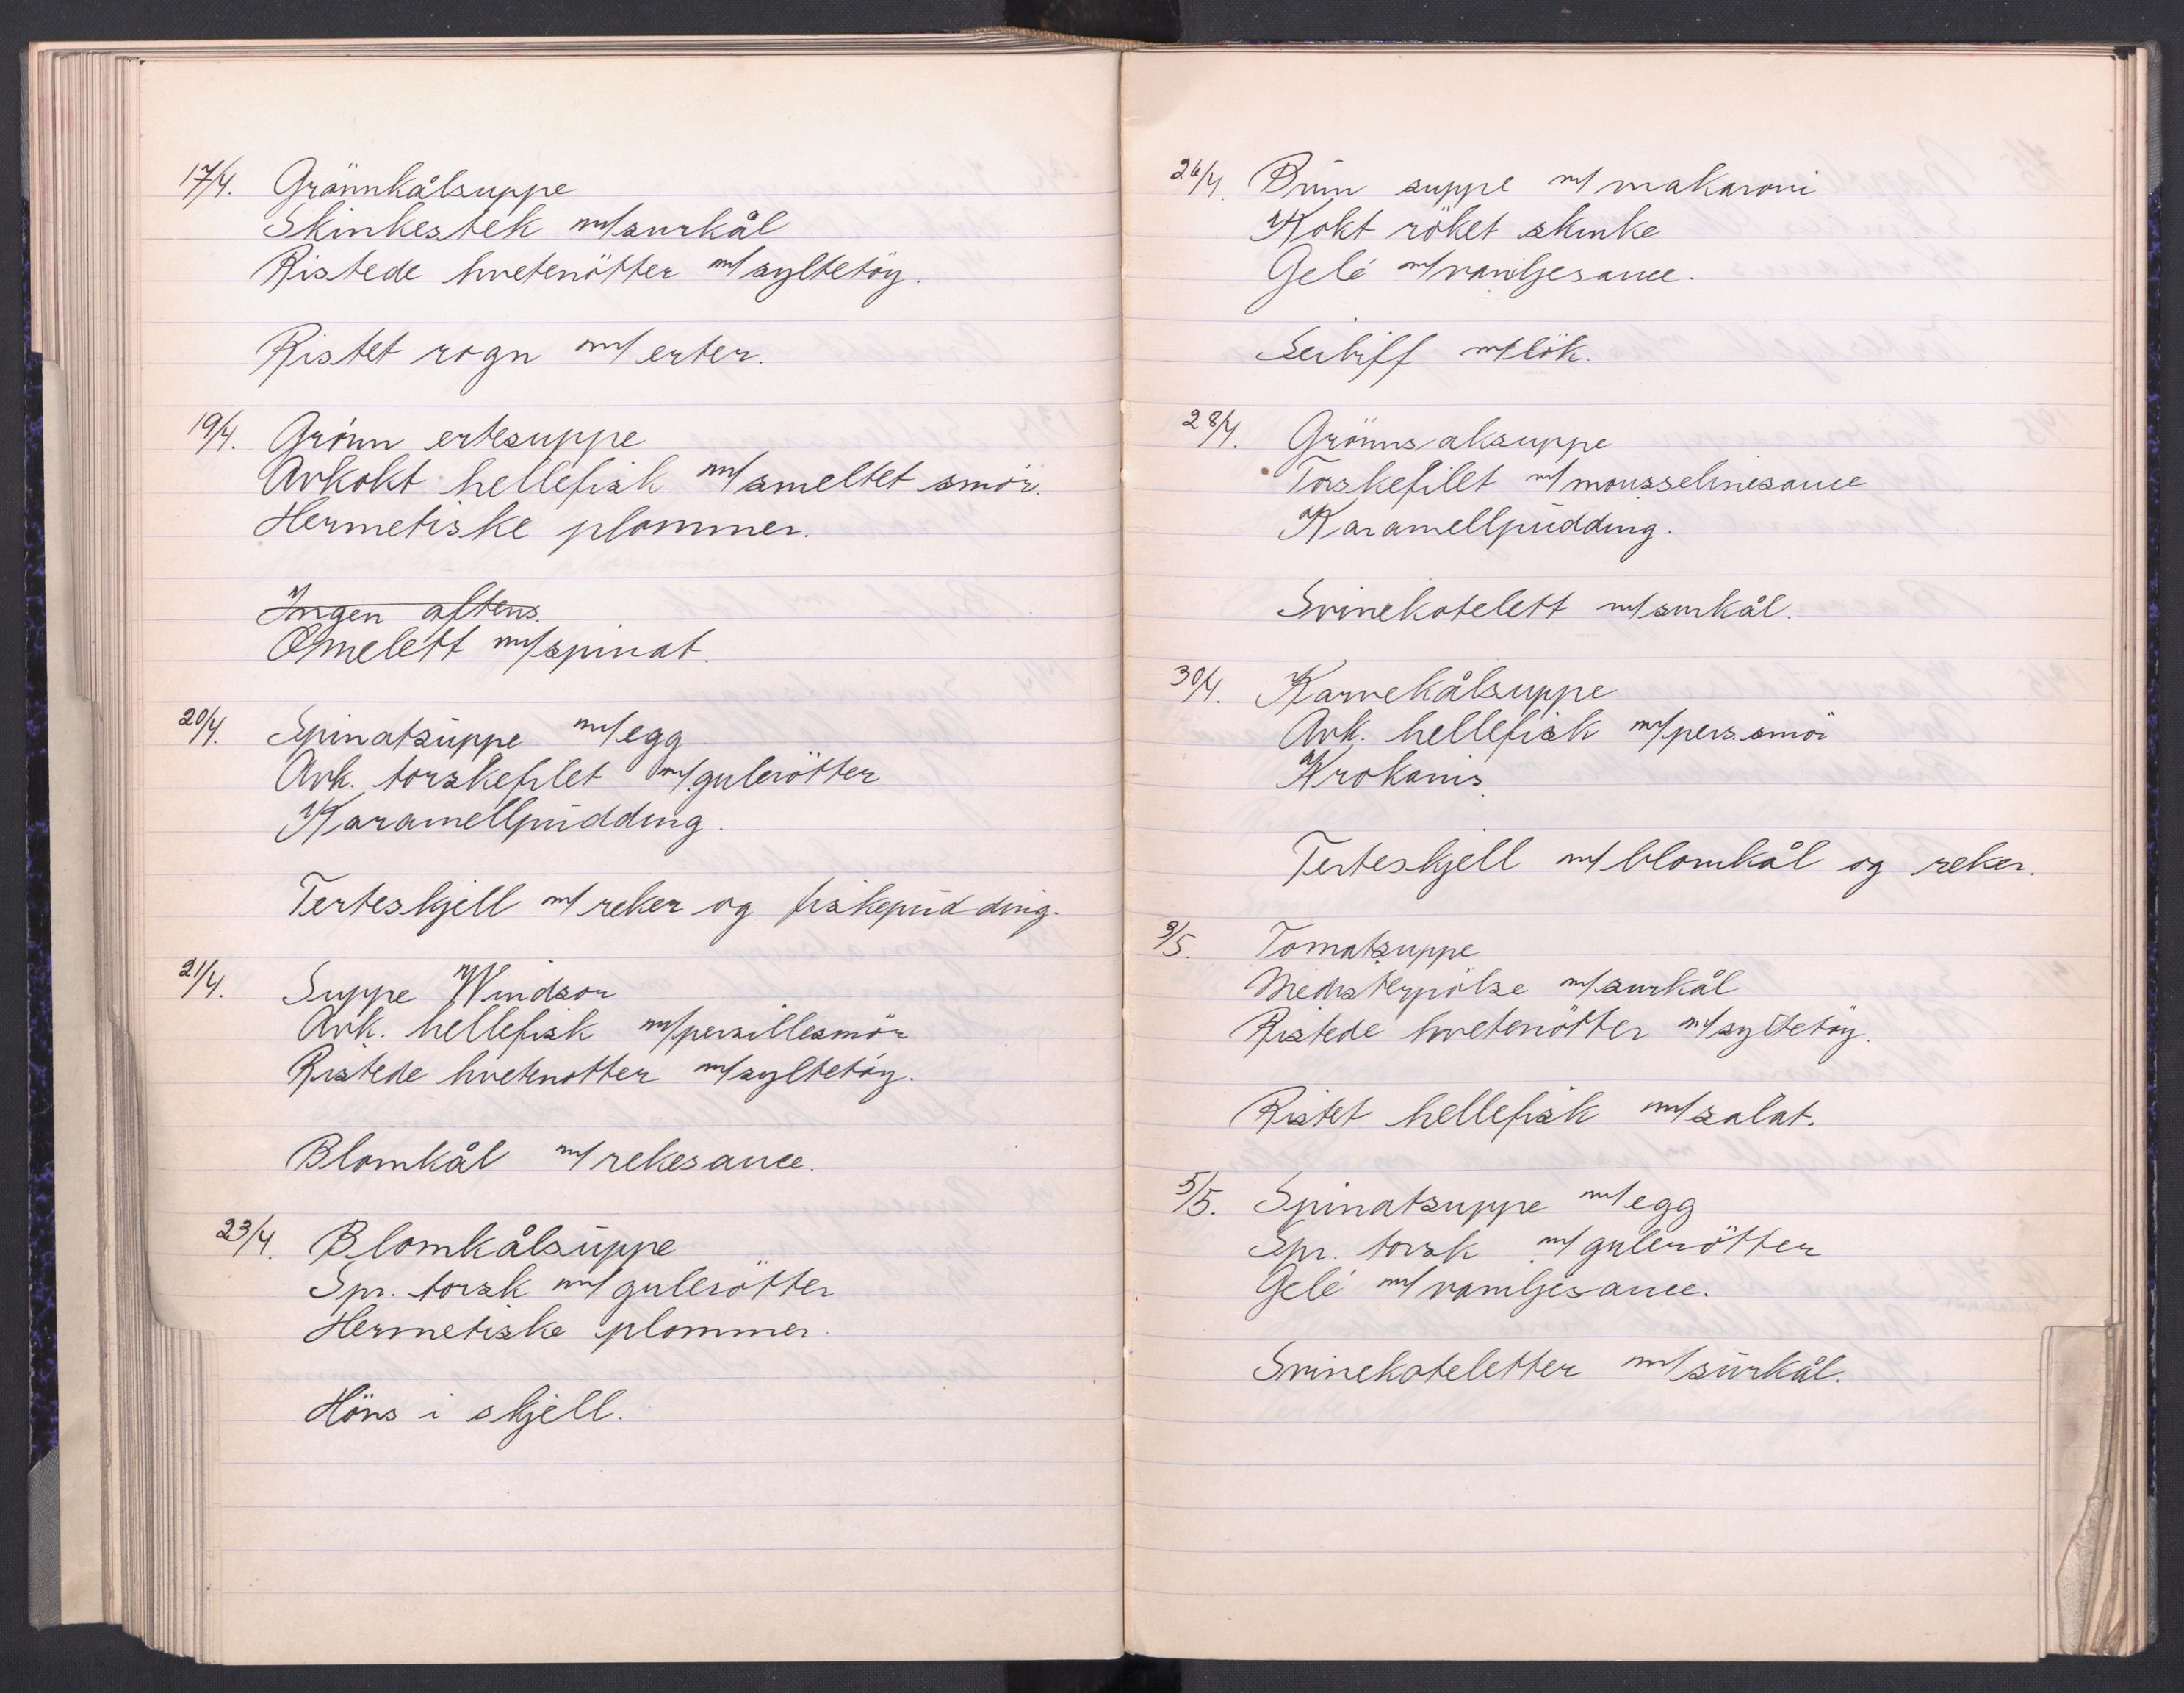 17/4. Grönnkålsuppe
Skinkestek m/surkål
Ristede hvetenötter m/syltetöy.
Ristet rogn m/erter.
19/4. Grönn ertesuppe
Avkokt hellefisk m/smeltet smör.
Hermetiske plommer.
Ingen aftens.
Omelett m/spinat.
20/4. Spinatsuppe m/egg
Avk. torskefilet m/gulerötter
Karamellpudding.
Terteskjell m/reker og fiskepudding.
21/4. Suppe Windsor
Avk. hellefisk m/persillesmör
Ristede hvetenøtter m/syltetöy.
Blomkål m/rekesauce.
23/4. Blomkålsuppe
Spr. torsk m/gulerötter
Hermetiske plommer.
Höns i skjell.
26/4. Brun suppe m/makaroni
Kokt röket skinke
Gelé m/vaniljesauce.
Seibiff m/lök.
28/4. Grönnsaksuppe
Torskefilet m/mousselinesauce
Karamellpudding.
Svinekotelett m/surkål.
30/4. Karvekålsuppe
Avk. hellefisk m/pers.smör
Krokanis.
Terteskjell m/blomkål og reker.
3/5. Tomatsuppe
Medisterpölse m/surkål
Ristede hvetenötter m/syltetöy.
Ristet hellefisk m/salat.
5/5. Spinatsuppe m/egg
Spr. torsk m/gulerötter
Gelé m/vaniljesauce.
Svinekoteletter m/surkål.